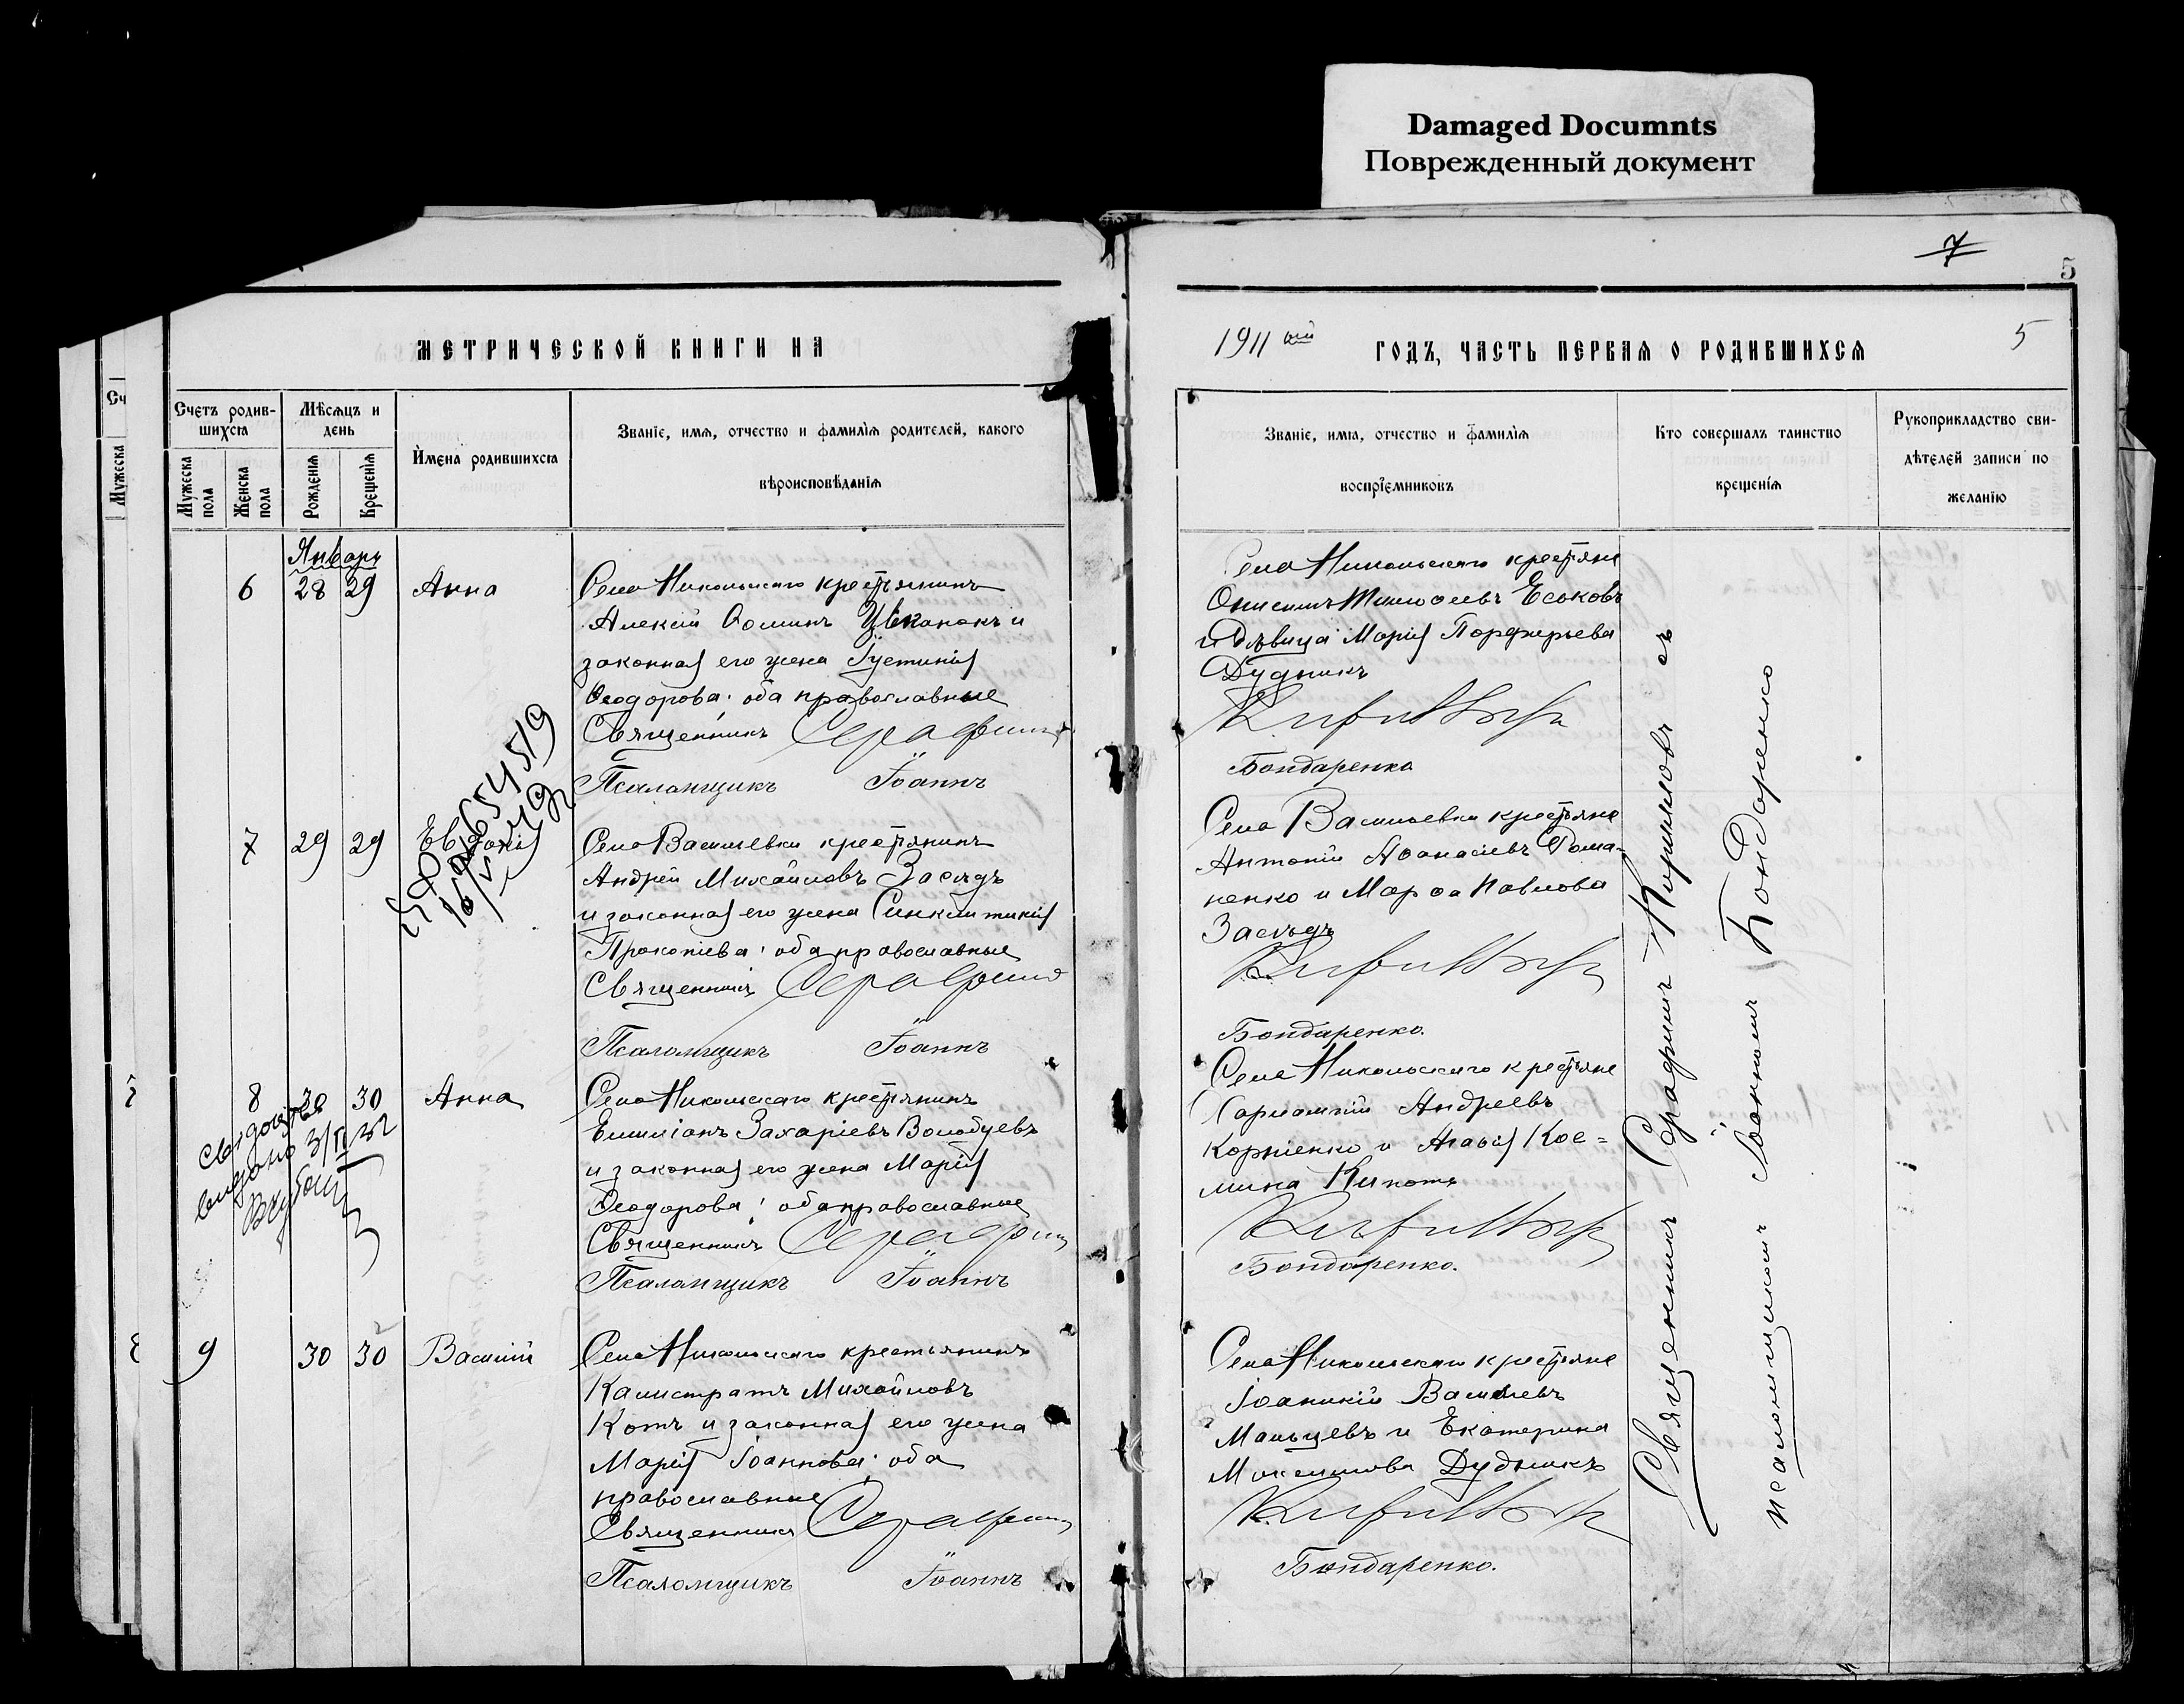 Damaged Documnts
Поврежденный документ
7
5
МЕТРИЧЕСКОЙ КНИГИ НА
1911 ый
ГОДЪ, ЧАСТЬ ПЕРВАЯ О РОДИВШИХСЯ
5
Сч
Мужеска
Счетъ родив-
шихся
Мѣсяцъ и
день
Мужеска
пола
Женска
пола
Рожденія
Крещенія
Имена родившихся
Званіе, имя, отчество и фамилія родителей, какого
вѣроисповѣданія
Званіе, имя, отчество и фамилія
воспріемниковъ
Кто совершалъ таинство
крещенія
Рукоприкладство сви-
дѣтелей записи по
желанію
Январь
6 28 29 Анна
Села Никольскаго крестьянинъ
Алексій Ѳоминъ и
законная его жена Іустинія
Ѳеодорова; оба православные
Священникъ Серафимъ
Псаломщикъ Іоаннъ
Села Никольскаго крестьяне
Онисимъ Еськовъ
и дѣвица Марія Порфирьева
Дудникъ
Бондаренко
7 29 29 Евдокія
Села Васильевки крестьянинъ
Андрей Михайловъ Засядь
и законная его жена Синклитикія
Прокопіева; оба православные
Священникъ Серафимъ
Псаломщикъ Іоаннъ
Села Васильевки крестьяне
Антоній Аѳанасіевъ Рома-
ненко и Марѳа Павлова
Засядь
Бондаренко.
8 30 30 Анна
Села Никольскаго крестьянинъ
Емиліанъ Захаріевъ Волобуевъ
и законная его жена Марія
Ѳеодорова; оба православные
Священникъ Серафимъ
Псаломщикъ Іоаннъ
Села Никольскаго крестьяне
Харлампій Андреевъ
Корніенко и Агаѳія Кос=
мина
Бондаренко.
9 30 30 Василій
Села Никольскаго крестьянинъ
Калистратъ Михайловъ
Котъ и законная его жена
Марія Іоаннова; оба
православные
Священникъ Серафимъ
Псаломщикъ Іоаннъ
Села Никольскаго крестьяне
Іоанникій Васильевъ
Мальцевъ и Екатерина
Максимова Дудникъ
Бондаренко.
Священникъ Серафимъ Кирилловъ съ
псаломщикомъ Іоанномъ Бондаренко